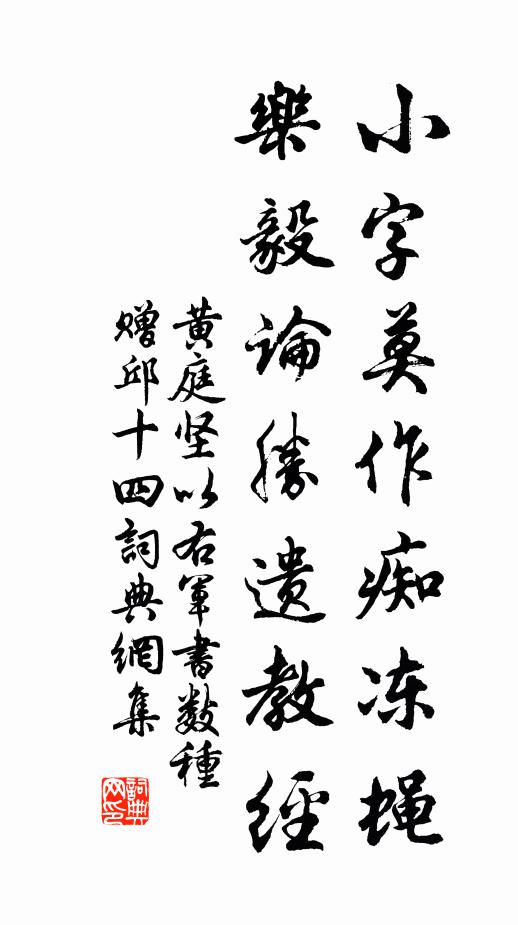 小字莫作痴冻蝇
樂毅論勝遺教經
黄庭坚以右军書数種
赠邱十四詞典網集
詞典網印